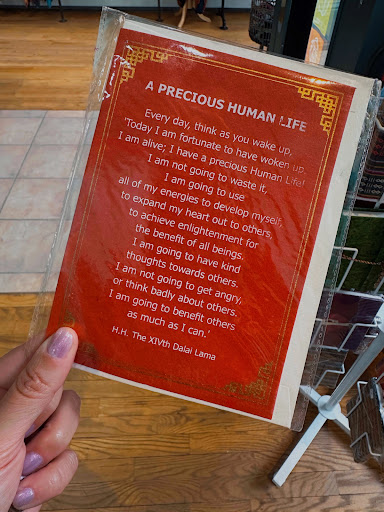 A PRECIOUS HUMAN LIFE
Every day, think as you wake up,
'Today I am fortunate to have woken up,
I am alive; I have a precious Human Life!
I am not going to waste it,
I am going to use
all of my energies to develop myself,
to expand my heart out to others,
to achieve enlightenment for
the benefit of all beings.
I am going to have kind
thoughts towards others.
I am not going to get angry,
or think badly about others.
I am going to benefit others
as much as I can.'
H.H. The XIVth Dalai Lama